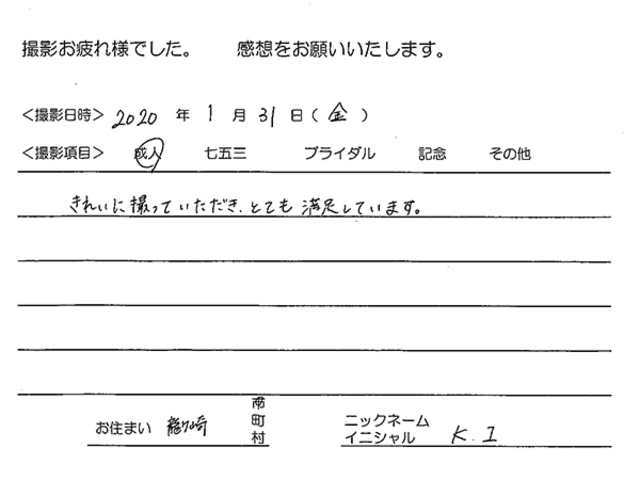 撮影お疲れ様でした。 感想をお願いいたします。
＜撮影日時＞ 2020 年 1 月 31 日（金）
＜撮影項目＞ 成人 七五三 ブライダル 記念 その他
きれいに撮っていただき、とても満足しています。
お住まい 龍ヶ崎 市町村
ニックネーム
イニシャル K.I